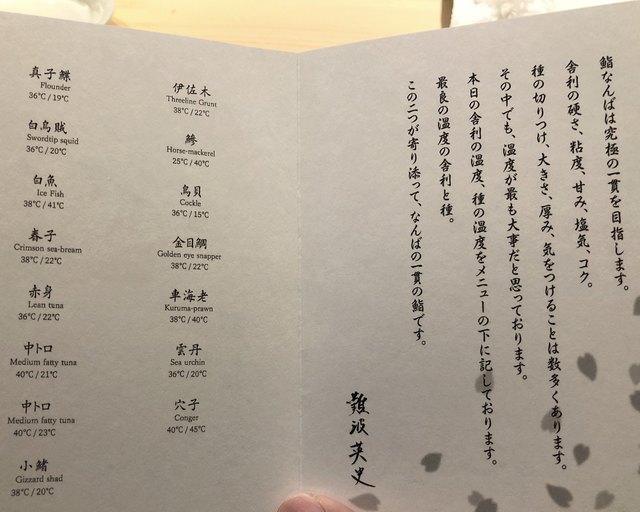 真子鰈
Flounder
36℃ / 19℃
白烏賊
Swordtip squid
36℃ / 20℃
白魚
Ice Fish
38℃ / 41℃
春子
Crimson sea-bream
38℃ / 22℃
赤身
Lean tuna
36℃ / 22℃
中トロ
Medium fatty tuna
40℃ / 21℃
中トロ
Medium fatty tuna
40℃ / 23℃
小鰭
Gizzard shad
38℃ / 20℃
伊佐木
Threeline Grunt
38℃ / 22℃
鯵
Horse-mackerel
25℃ / 40℃
鳥貝
Cockle
36℃ / 15℃
金目鯛
Golden eye snapper
38℃ / 22℃
車海老
Kuruma-prawn
38℃ / 40℃
雲丹
Sea urchin
36℃ / 20℃
穴子
Conger
40℃ / 45℃
鮨なんばは究極の一貫を目指します。
舎利の硬さ、粘度、甘み、塩気、コク。
種の切りつけ、大きさ、厚み、気をつけることは数多くあります。
その中でも、温度が最も大事だと思っております。
本日の舎利の温度、種の温度をメニューの下に記しております。
最良の温度の舎利と種。
この二つが寄り添って、なんばの一貫の鮨です。
難波英史